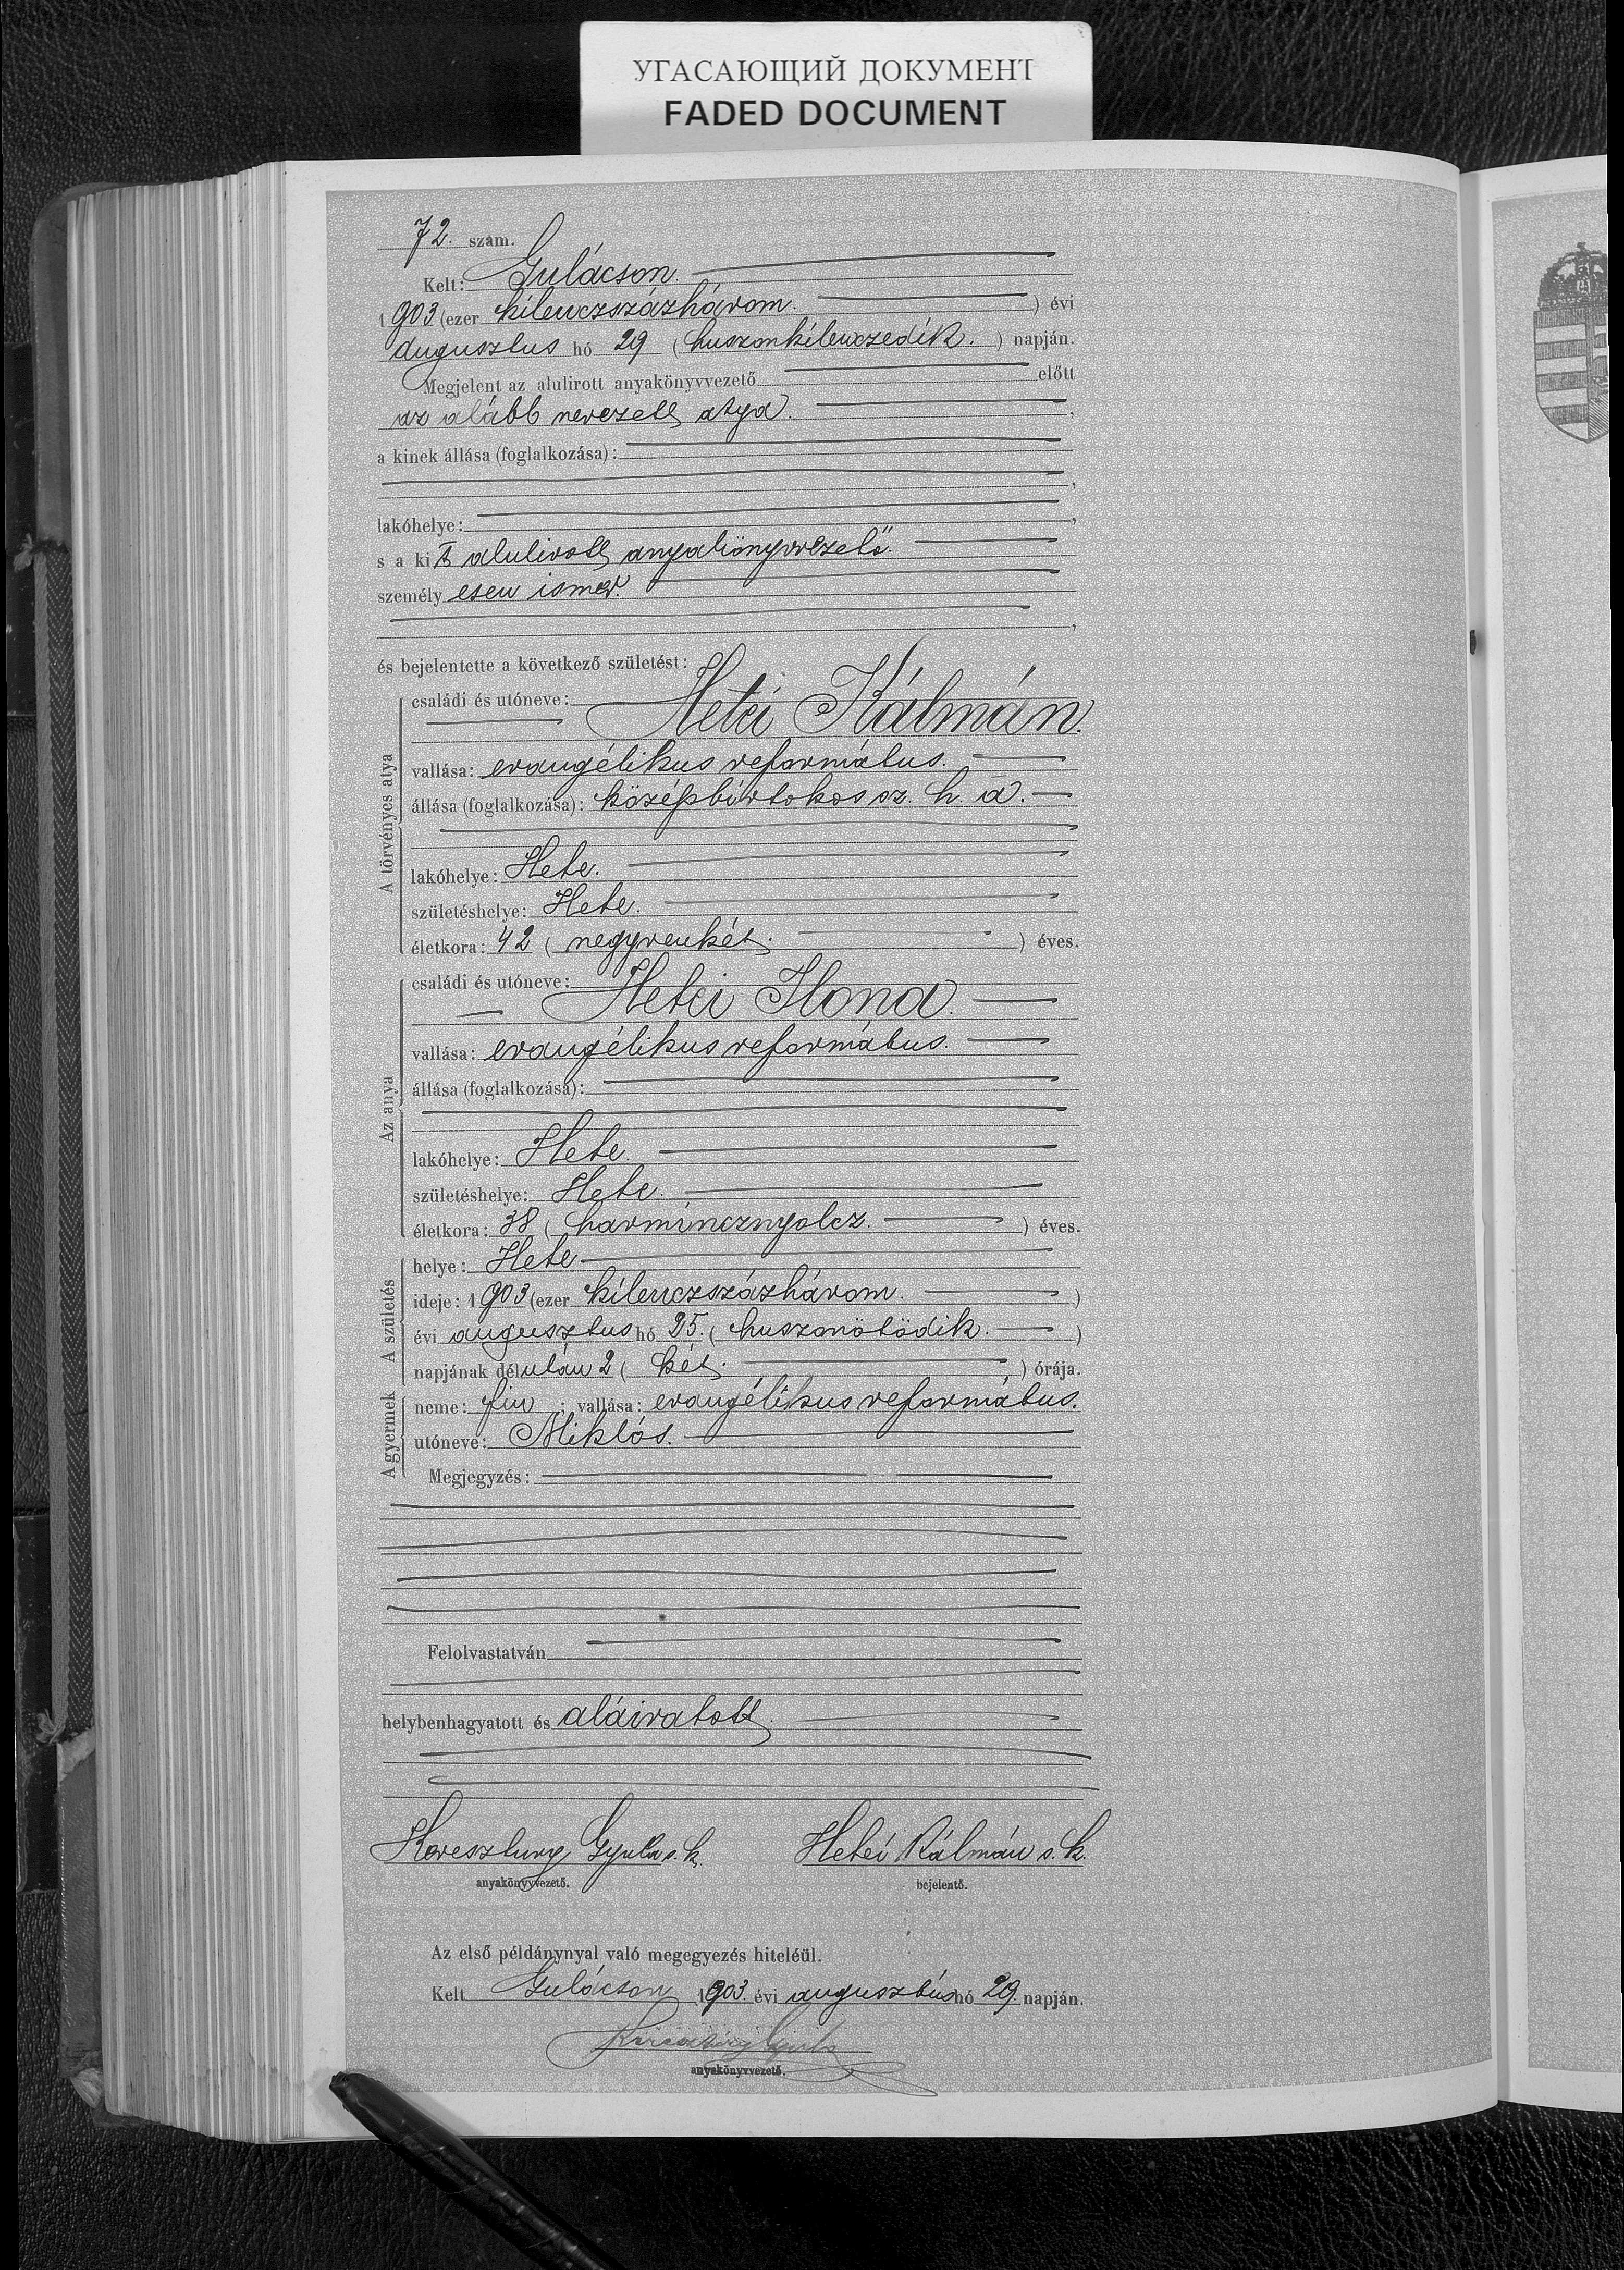 УГАСАЮЩИЙ ДОКУМЕНТ
FADED DOCUMENT
72. szám.
Kelt: Gulácson.
1903 (ezer kilenczszázhárom. ) évi
augusztus hó 29 (huszonkilenczedik. ) napján.
Megjelent az alulirott anyakönyvvezető előtt
az alább nevezett atya.
a kinek állása (foglalkozása):
lakóhelye:
s a kit alulirott anyakönyvvezető
személyesen ismer.
és bejelentette a következő születést:
A törvényes atya
családi és utóneve: Hetei Kálmán.
vallása: evangélikus református.
állása (foglalkozása): középbirtokos oz. h. a.
lakóhelye: Hete.
születéshelye: Hete.
életkora: 42 (negyvenkét. ) éves.
Az anya
családi és utóneve: Hetei Ilona.
vallása: evangélikus református.
állása (foglalkozása):
lakóhelye: Hete.
születéshelye: Hete.
életkora: 38 (harmincznyolcz. ) éves.
A születés
helye: Hete
ideje: 1903 (ezer kilenczszázhárom. )
évi augusztus hó 25. (huszonötödik. )
napjának délután 2 (két. ) órája.
A gyermek
neme: fiu ; vallása: evangélikus református.
utóneve: Miklós.
Megjegyzés:
Felolvastatván
helybenhagyatott és aláiratott.
Keresztury Gyula s. k. Hetei Kálmán s. k.
anyakönyvvezető. bejelentő.
Az első példánynyal való megegyezés hiteléül.
Kelt Gulácson 1903. évi augusztus hó 29. napján.
Keresztury Gyula
anyakönyvvezető.